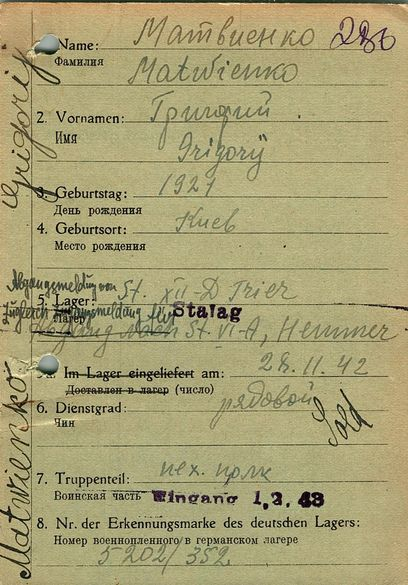 Name: Матвиенко 286
Фамилия
Matwienko
2. Vornamen: Григорий
Имя
Grigorij
3. Geburtstag: 1921
День рождения
4. Geburtsort: Киев
Место рождения
Abgangsmeldung von
5. Lager: St. XII-D Trier
Лагер
zugleich Zugangsmeldung für Stalag
Abgang nach St. VI-A, Hemmer
5a. Im Lager eingeliefert am: 28.11.42
Доставлен в лагер (число)
6. Dienstgrad: рядовой
Чин
Sold
7. Truppenteil: пех. полк
Воинская часть Eingang 1.3.43
8. Nr. der Erkennungsmarke des deutschen Lagers:
Номер военнопленного в германском лагере
5202/352
Matwienko Grigorij